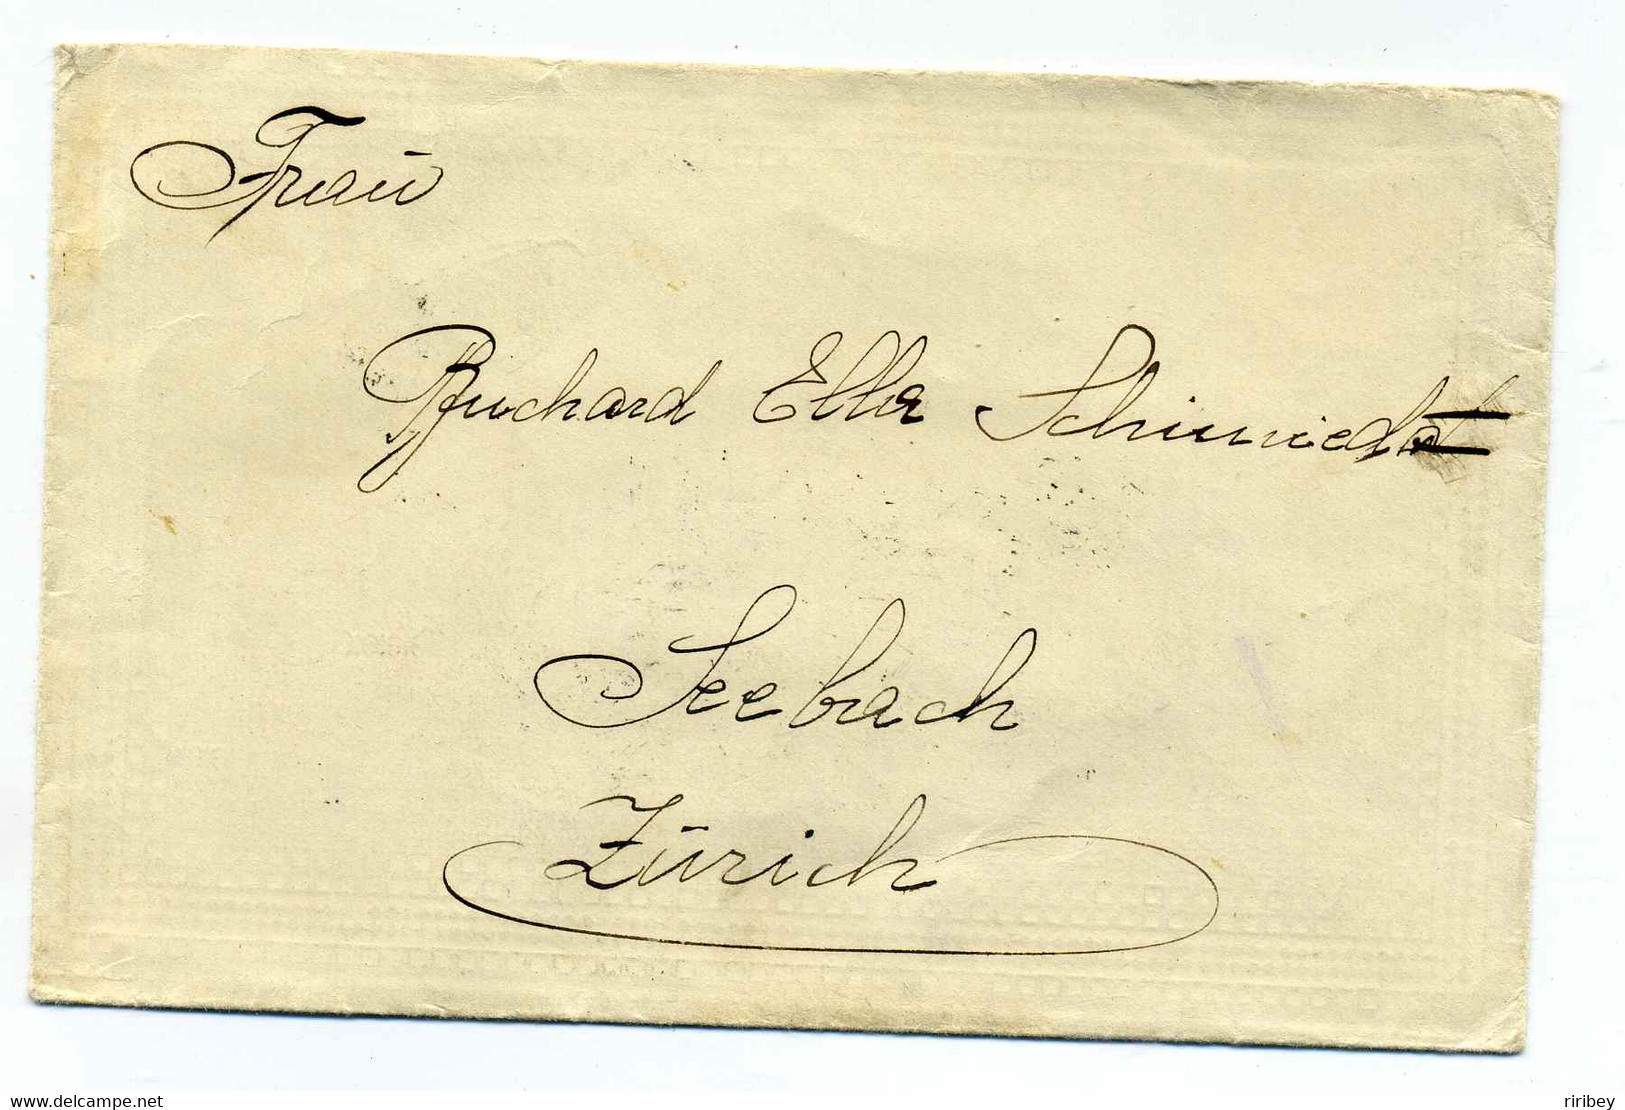 Fraü
Ruchard Ella Schimiedt
Seebach
Zürich
delcampe.net
riribey